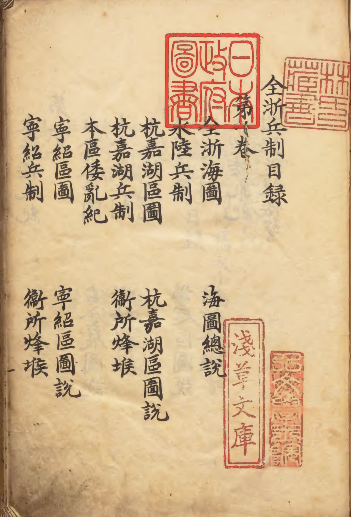 全浙兵制目録
第一卷
全浙海圖 海圖總說
水陸兵制
杭嘉湖區圖 杭嘉湖區圖說
杭嘉湖兵制 衞所烽堠
本區倭亂紀
寧紹區圖 寧紹區圖說
寧紹兵制 衞所烽堠
日本
政府
圖書
淺草文庫